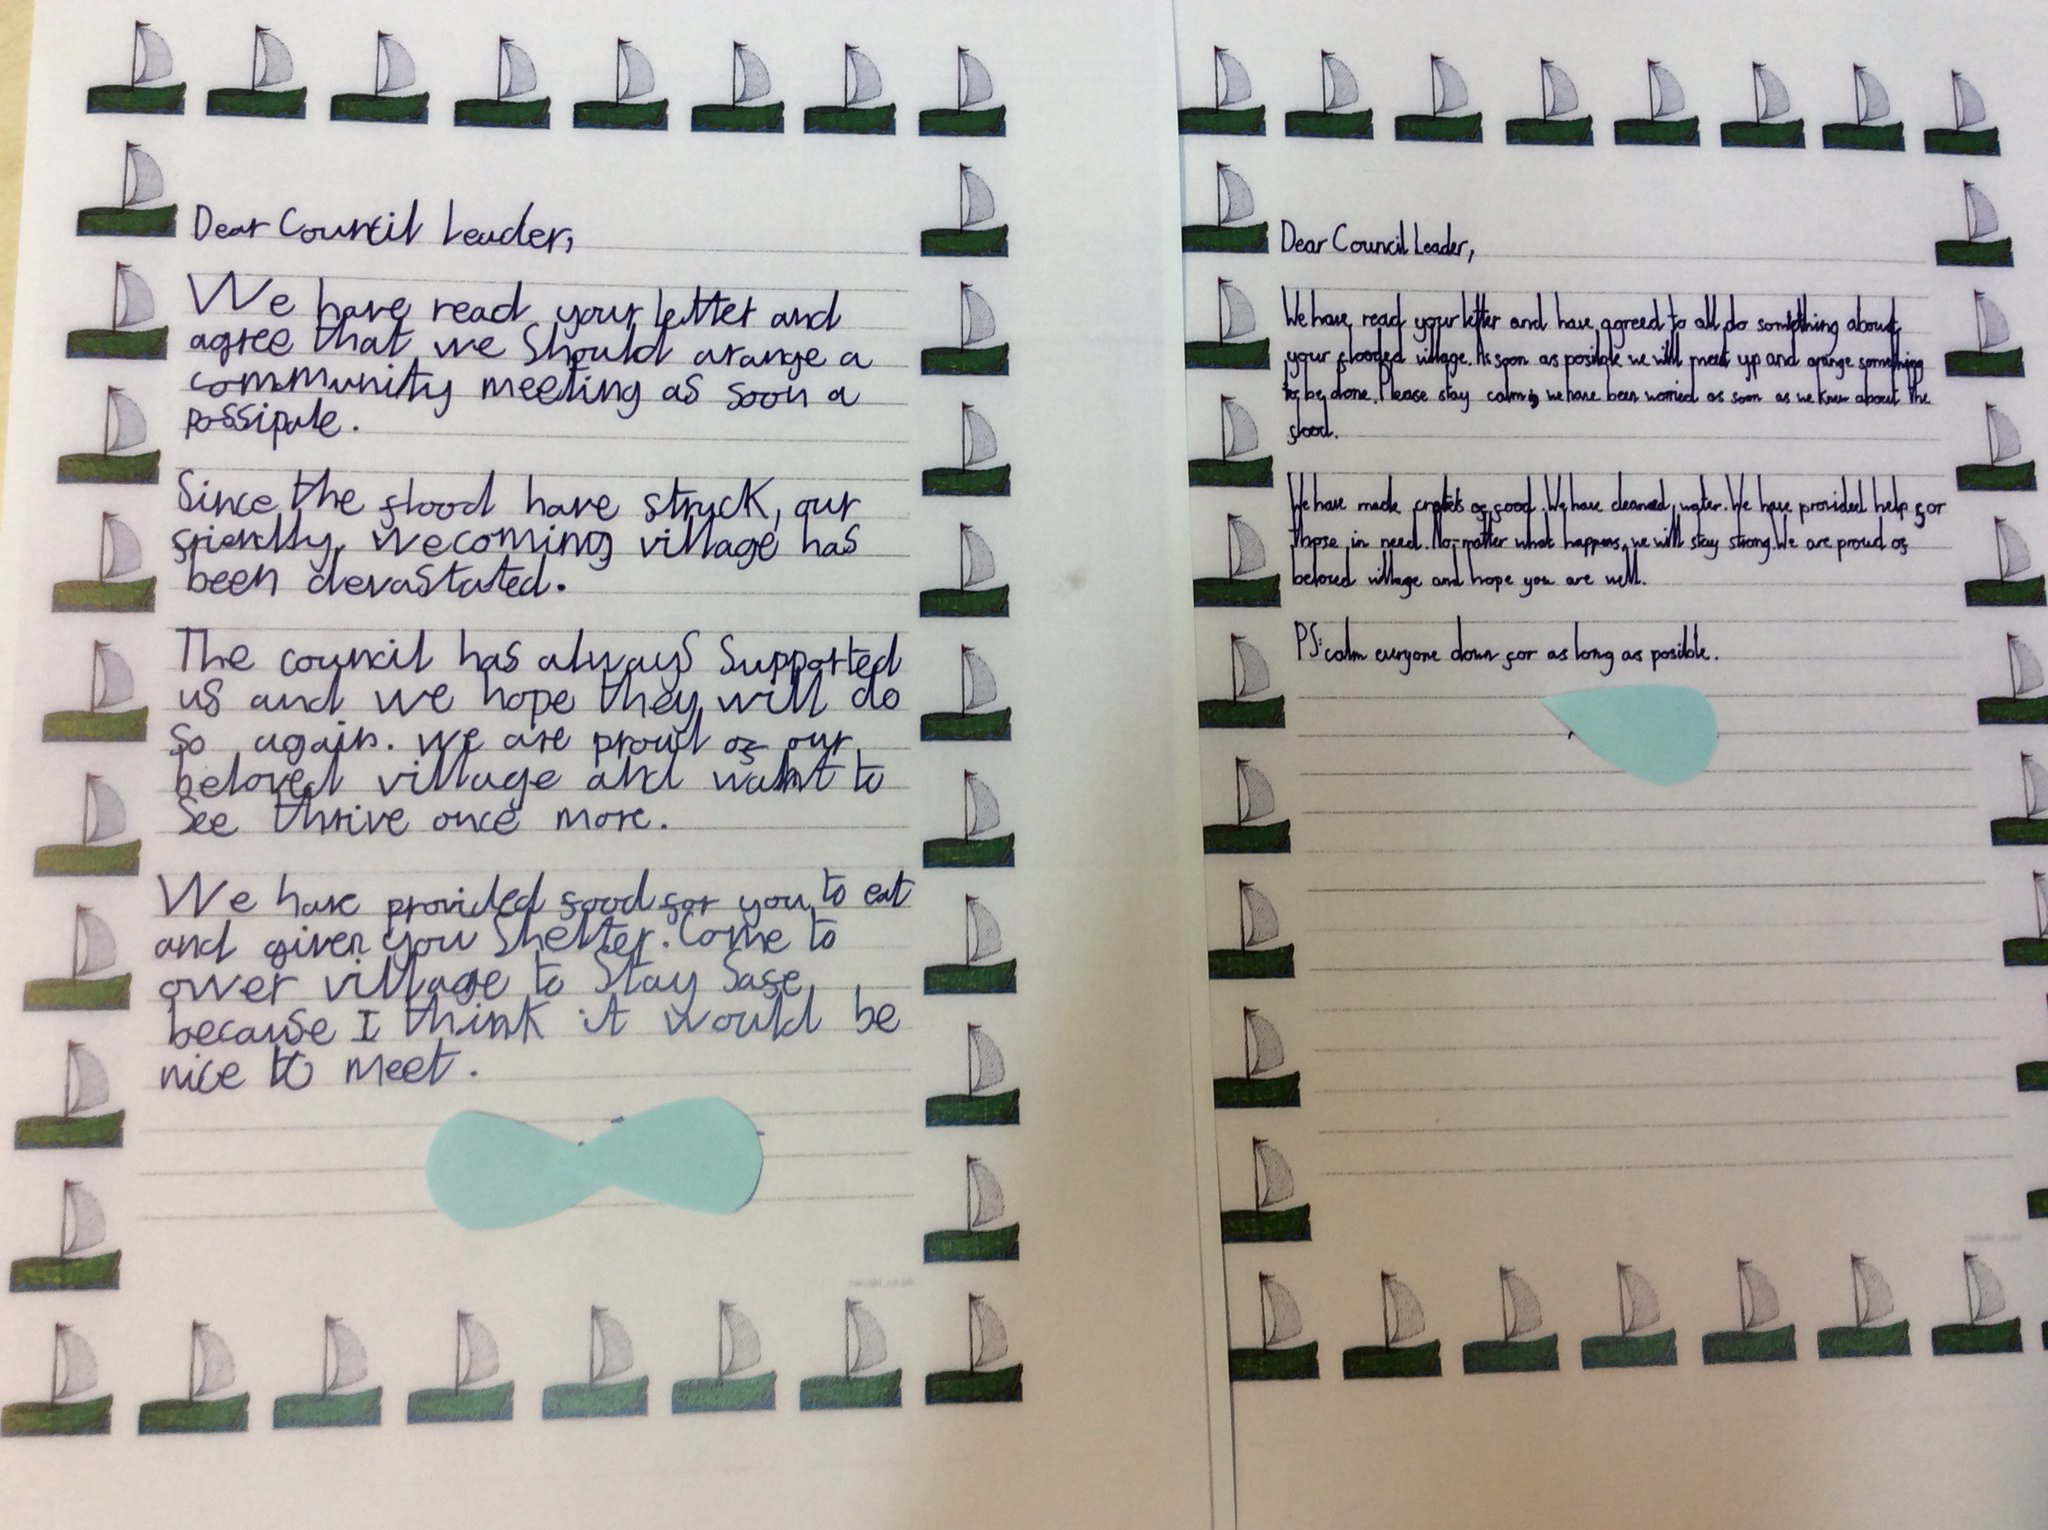 Dear Council Leader,
We have read your letter and
agree that we should arange a
community meeting as soon a
possipule.
Since the flood have struck, our
friendly, wecoming village has
been devastated.
The council has always supported
us and we hope they will do
so again. we are proud of our
beloved village and want to
see thrive once more.
We have provided food for you to eat
and given you shelter. Come to
ower village to stay safe
because I think it would be
nice to meet.
Dear Council Leader,
We have read your letter and have agreed to all do something about
your flooded village. As soon as posible we will meet up and arange something
to be done. Please stay calm, we have been worried as soon as we knew about the
flood.
We have made crates of food. We have cleaned water. We have provided help for
those in need. No matter what happens, we will stay strong. We are proud of
beloved village and hope you are well.
PS: calm everyone down for as long as posible.